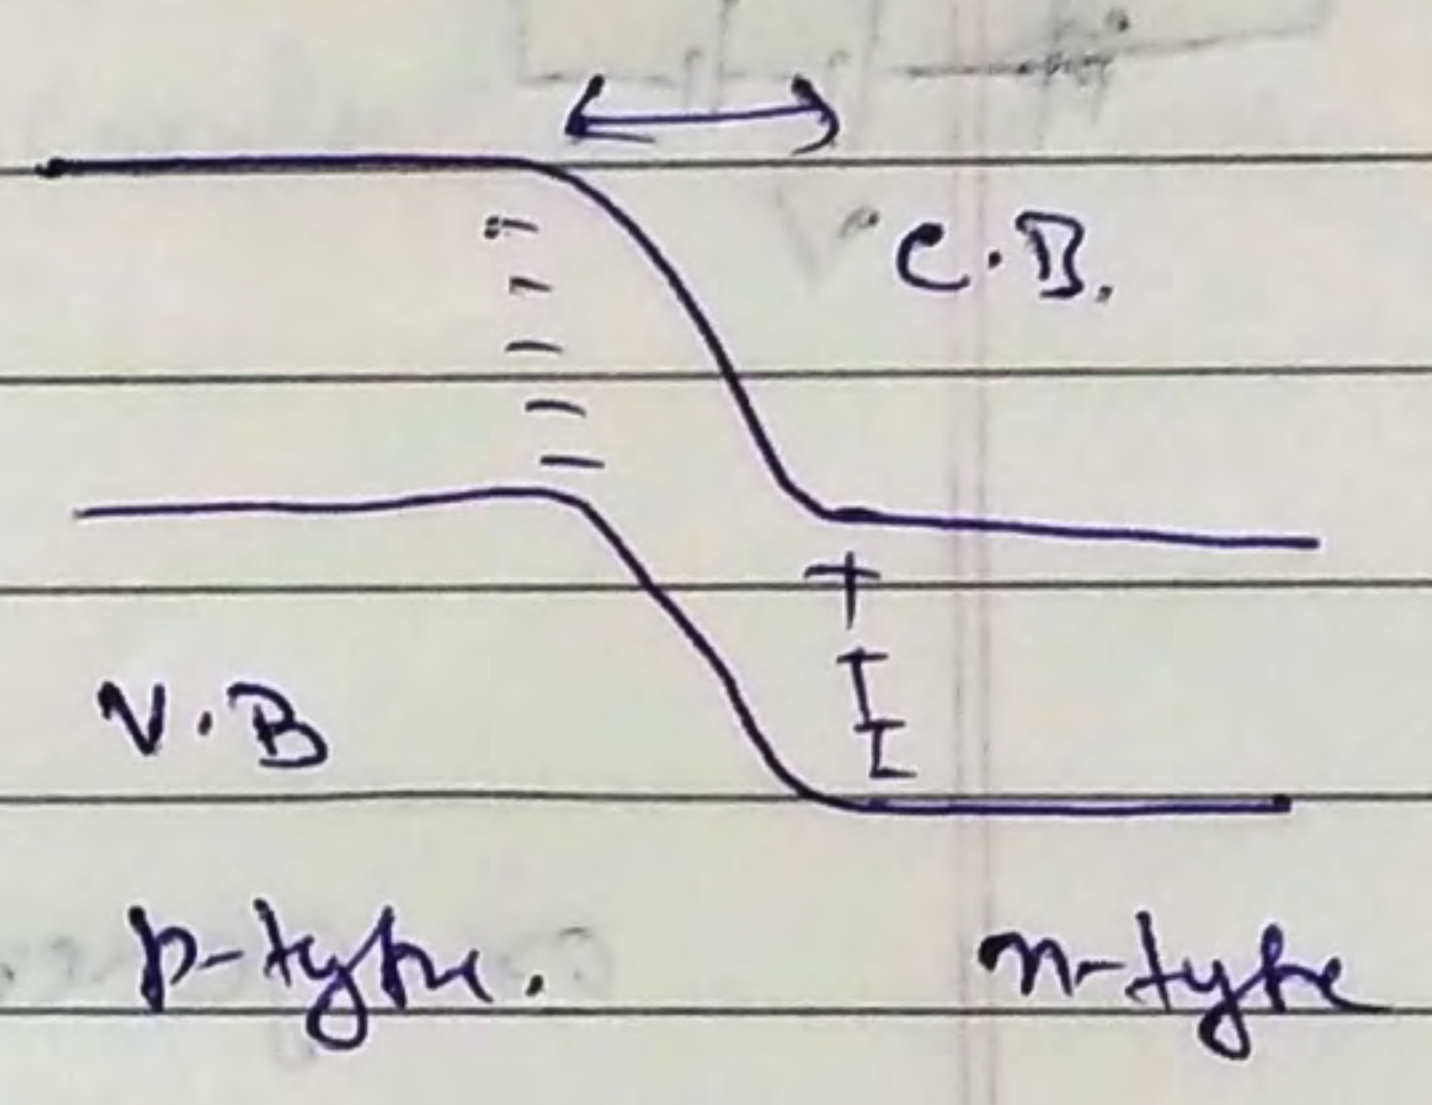 C.B.
V.B
p-type.
n-type